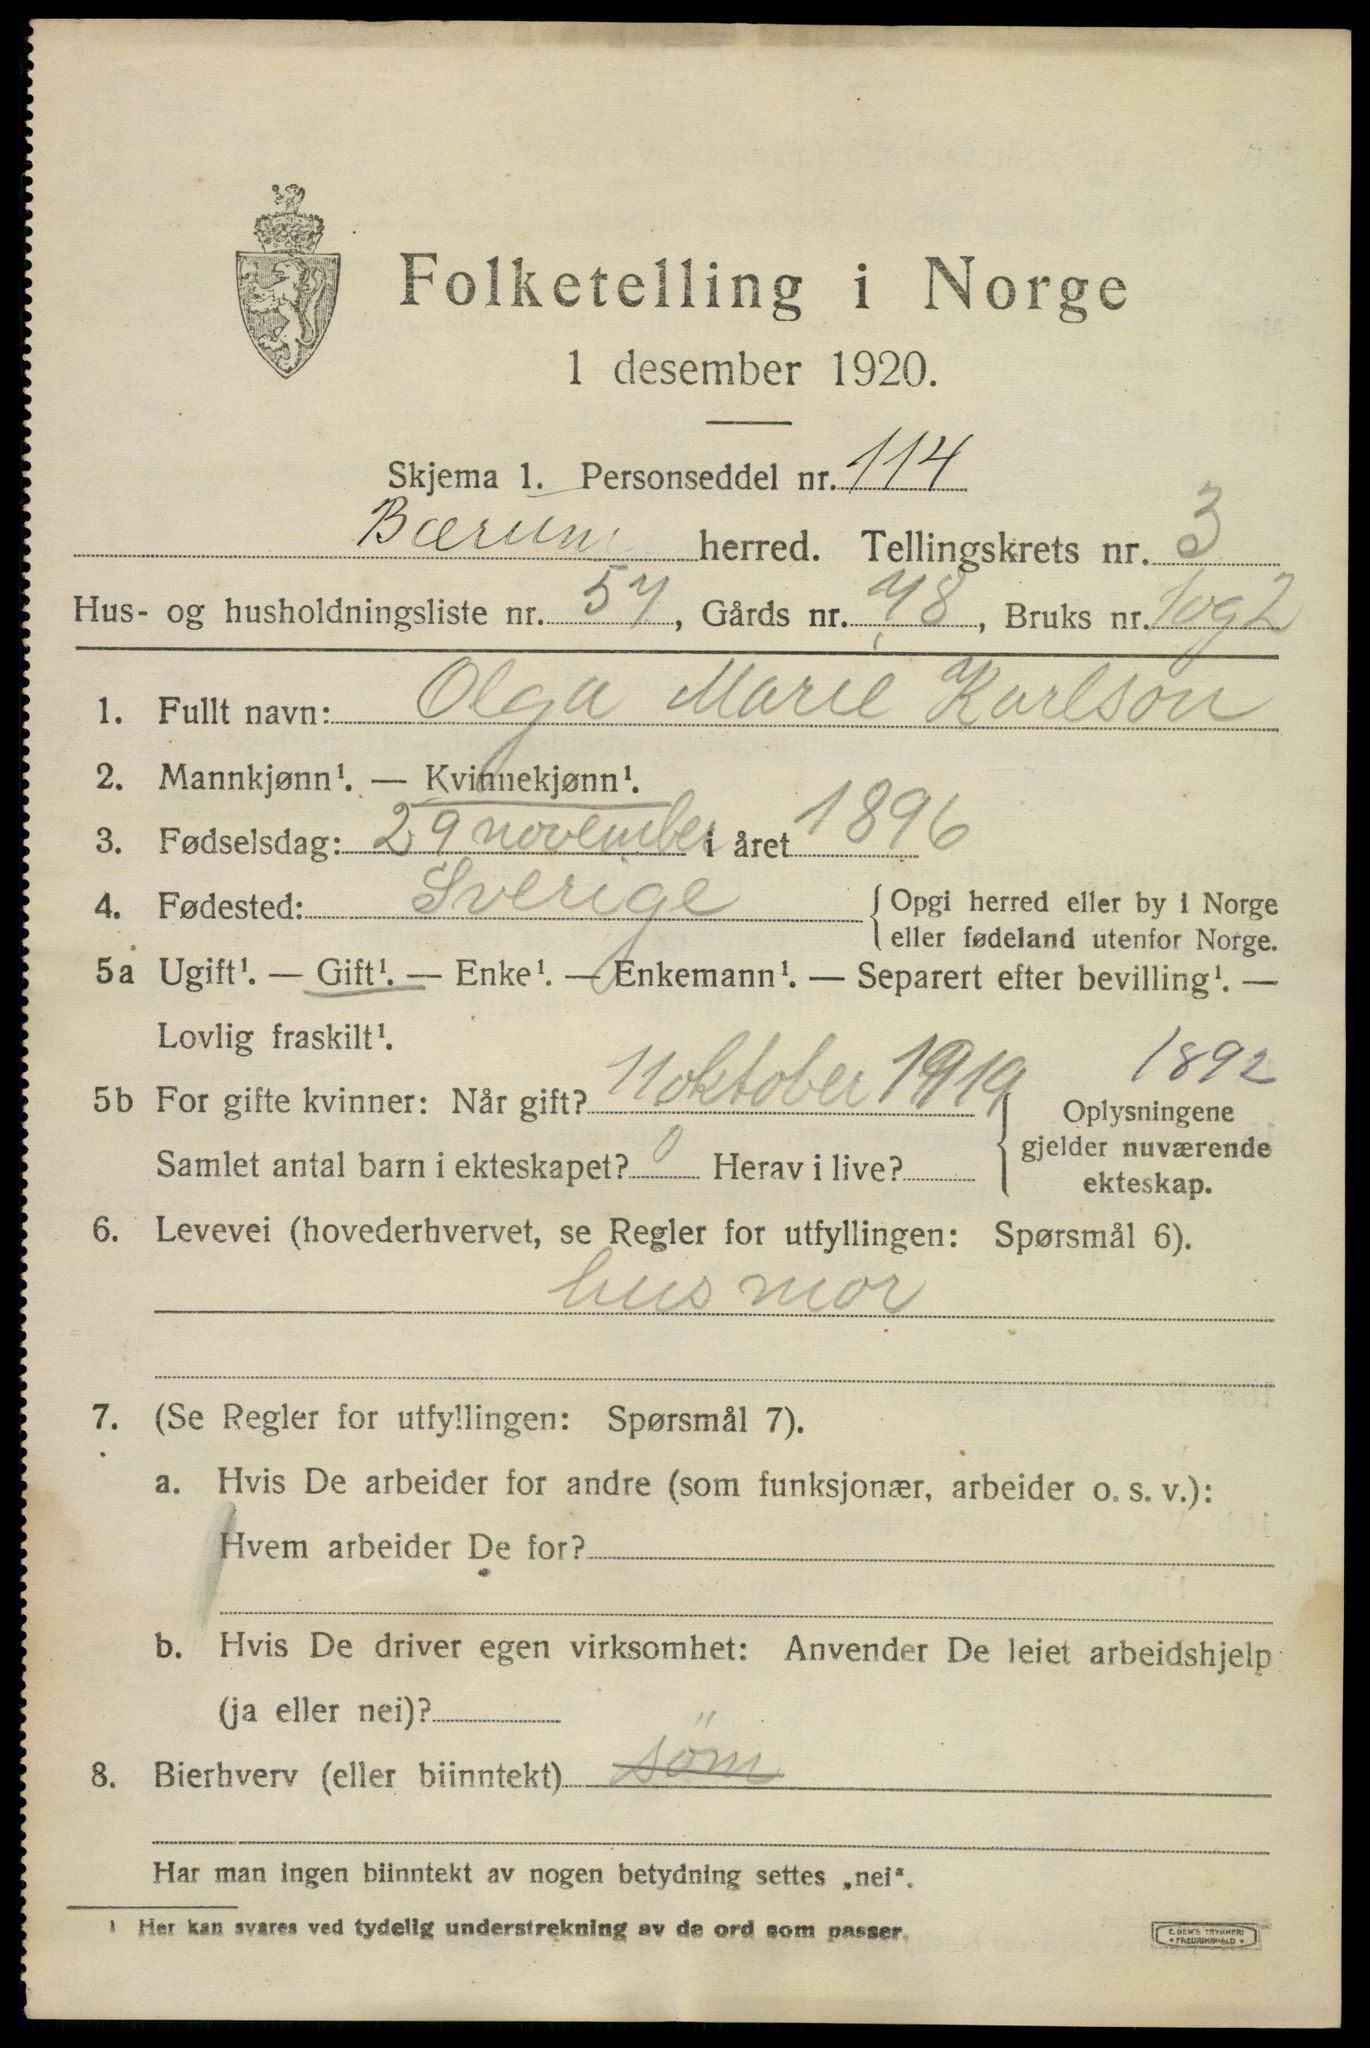 Folketelling i Norge
1 desember 1920.
Skjema 1. Personseddel nr. 114
Bærum herred. Tellingskrets nr. 3
Hus- og husholdningsliste nr. 57, Gårds nr. 78, Bruks nr. 1og2
1. Fullt navn: Olga Marie Karlson
2. Mannkjønn¹. — Kvinnekjønn¹.
3. Fødselsdag: 29 november i året 1896
4. Fødested: Sverige { Opgi herred eller by i Norge
eller fødeland utenfor Norge.
5a Ugift¹. — Gift¹. — Enke¹. — Enkemann¹. — Separert efter bevilling¹. —
Lovlig fraskilt¹.
1892
5b For gifte kvinner: Når gift? 11 oktober 1919 { Oplysningene
gjelder nuværende
ekteskap.
Samlet antal barn i ekteskapet? 0 Herav i live?
6. Levevei (hovederhvervet, se Regler for utfyllingen: Spørsmål 6).
husmor
7. (Se Regler for utfyllingen: Spørsmål 7).
a. Hvis De arbeider for andre (som funksjonær, arbeider o. s. v.):
Hvem arbeider De for?
b. Hvis De driver egen virksomhet: Anvender De leiet arbeidshjelp
(ja eller nei)?
8. Bierhverv (eller biinntekt) söm
Har man ingen biinntekt av nogen betydning settes „nei“.
¹ Her kan svares ved tydelig understrekning av de ord som passer.
E. SEM'S TRYKKERI
FREDRIKSHALD